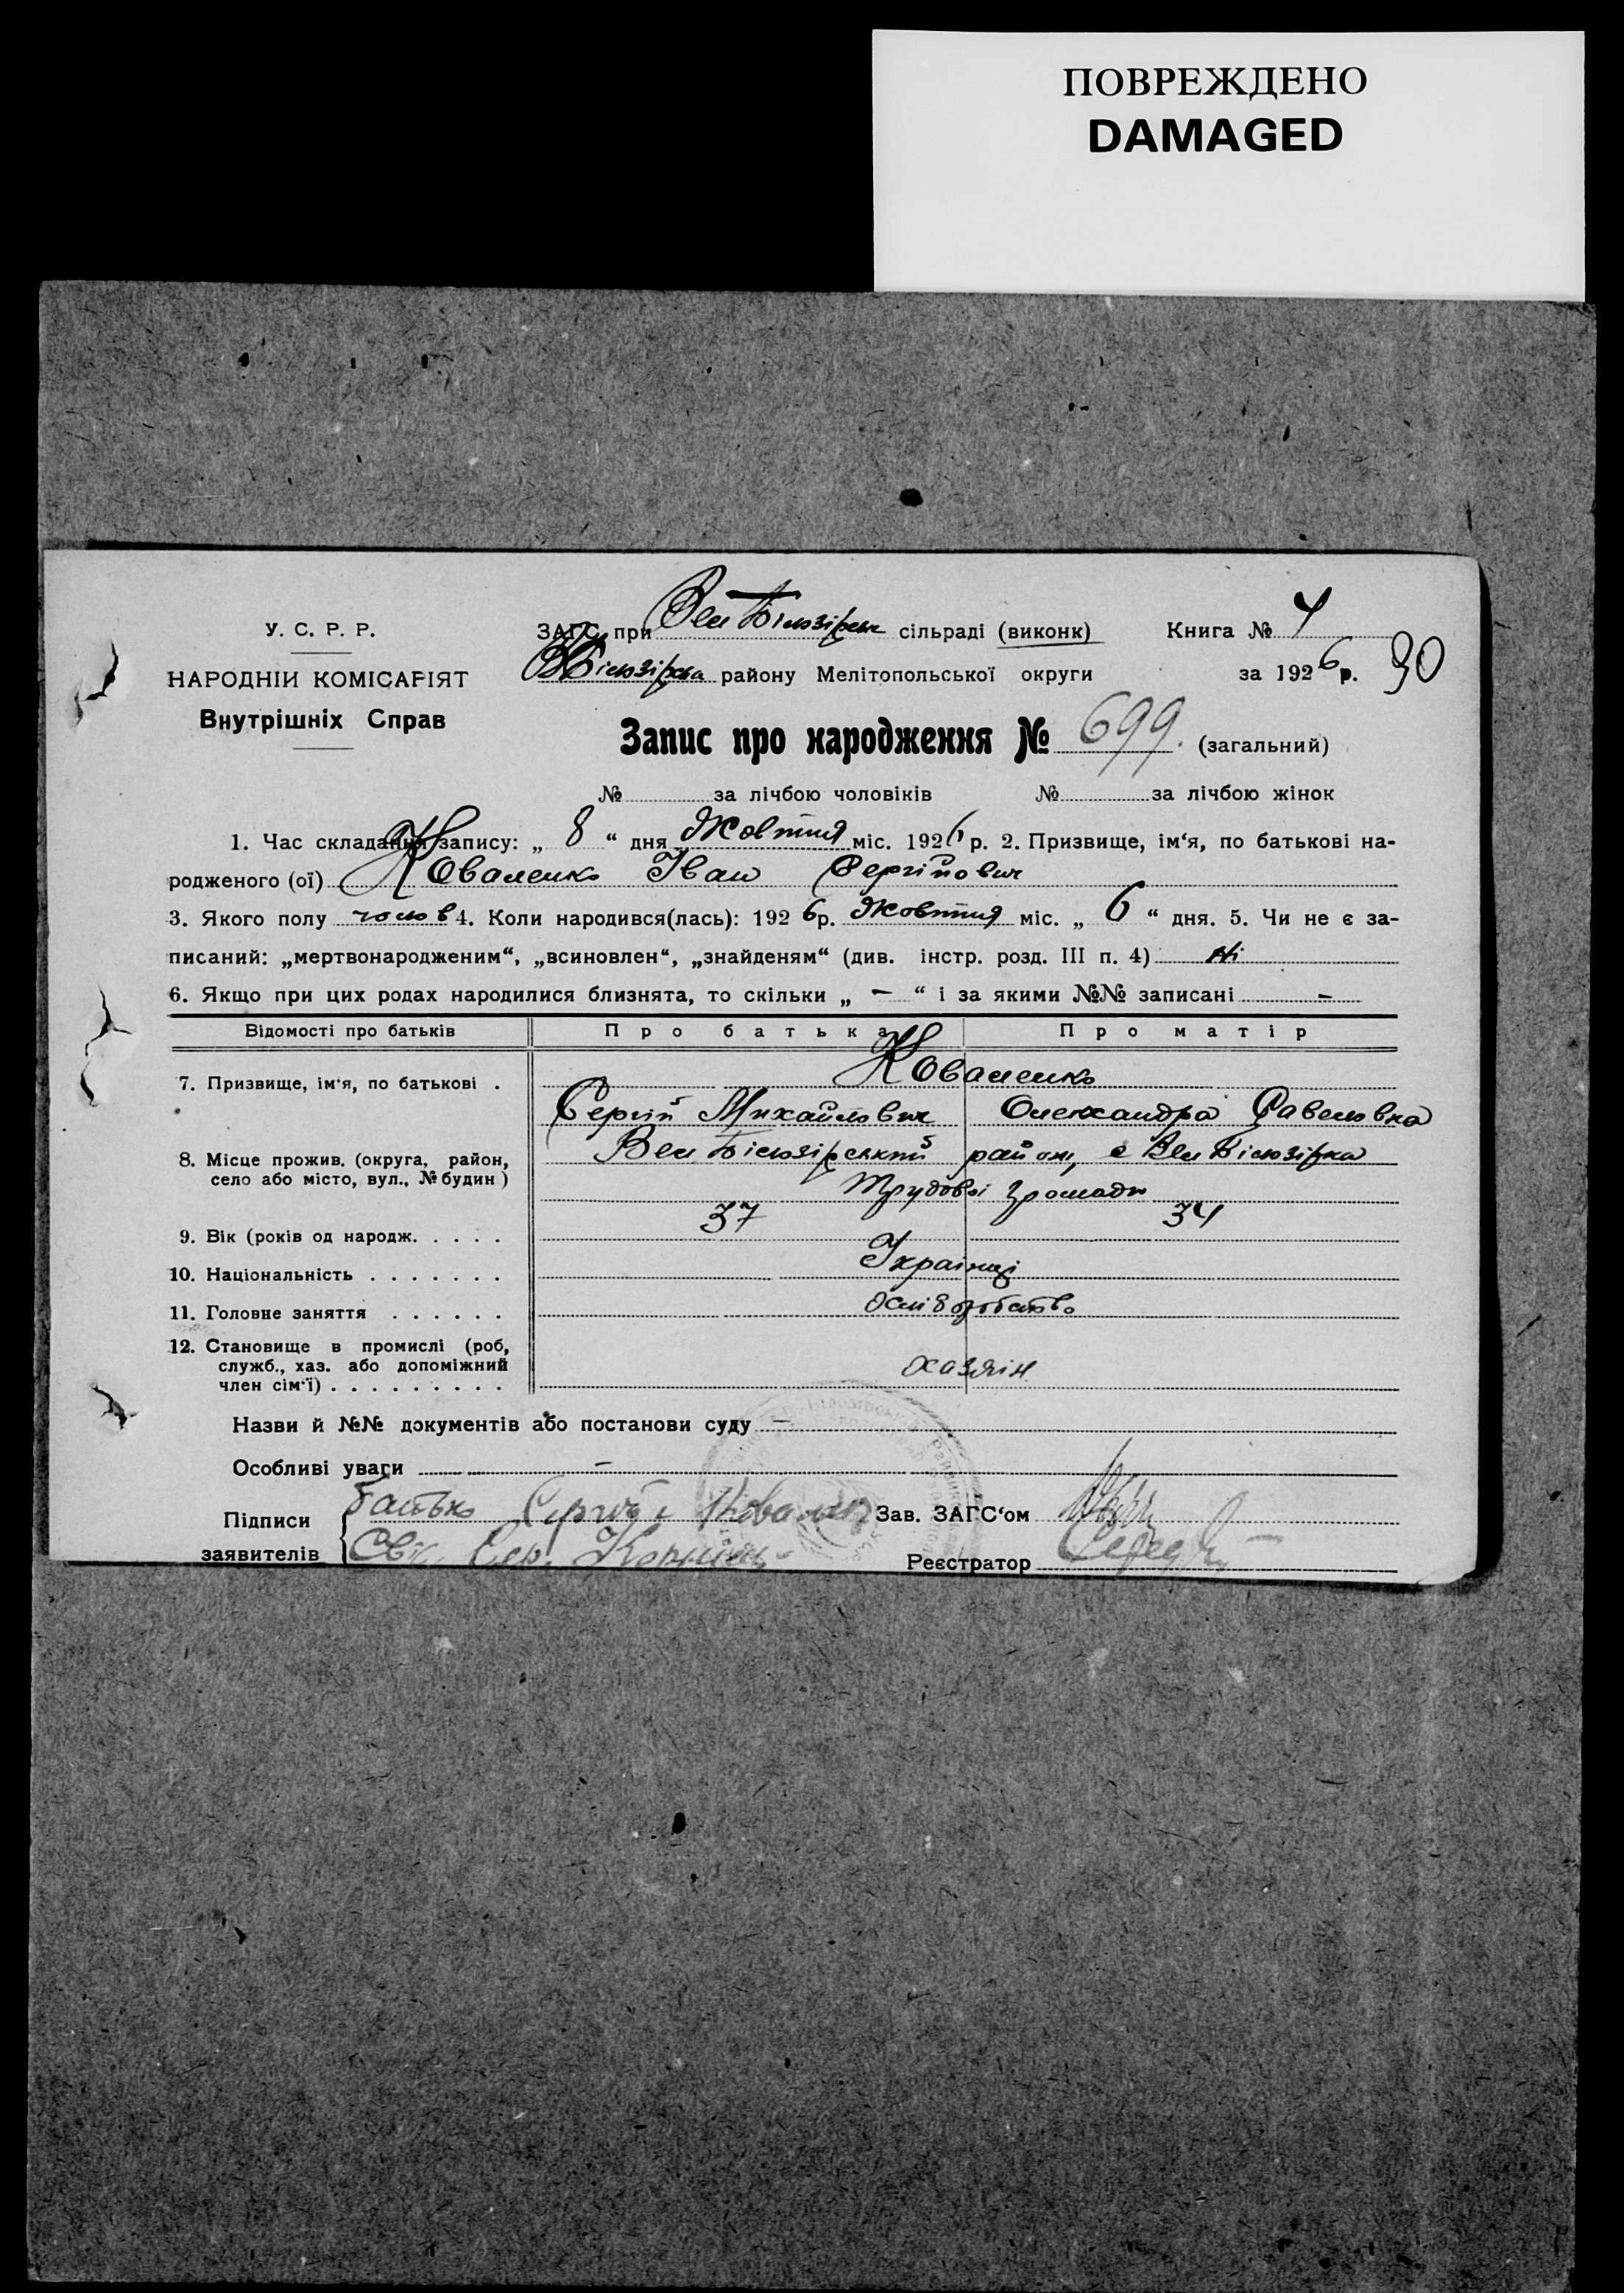 ПОВРЕЖДЕНО
DAMAGED
У. С. Р. Р.
НАРОДНІЙ КОМІСАРІЯТ
Внутрішніх Справ
ЗАГС при Вел Білозірськ сільраді (виконк)
Білозірка району Мелітопольської округи
Книга № 4
за 1926 р. 90
Запис про народження № 699. (загальний)
№ за лічбою чоловіків № за лічбою жінок
1. Час складання запису: „ 8 “ дня Жовтня міс. 1926 р. 2. Призвище, ім‘я, по батькові на-
родженого (ої) Коваленко Іван Сергійович
3. Якого полу чолов 4. Коли народився(лась): 1926 р. Жовтня міс. „ 6 “ дня. 5. Чи не є за-
писаний: „мертвонародженим“, „всиновлен“, „знайденям“ (див. інстр. розд. III п. 4) Ні
6. Якщо при цих родах народилися близнята, то скільки „ — “ і за якими №№ записані –
Відомості про батьків Про батька Про матір
7. Призвище, ім‘я, по батькові . Коваленко
Сергій Михайлович Олександра Савеловна
8. Місце прожив. (округа, район,
село або місто, вул., № будин)
Вел Білозірський район, с Вел Білозірка
Трудової Громади
9. Вік (років од народж. . . . . 37 34
10. Національність . . . . . . . Українці
11. Головне заняття . . . . . . Хліборобство
12. Становище в промислі (роб,
служб., хаз. або допоміжний
член сім‘ї) . . . . . . . . . хазяїн
Назви й №№ документів або постанови суду —
Особливі уваги —
Підписи
заявителів
батько Сергій Коваленко
Свід.
Зав. ЗАГС‘ом
Реєстратор